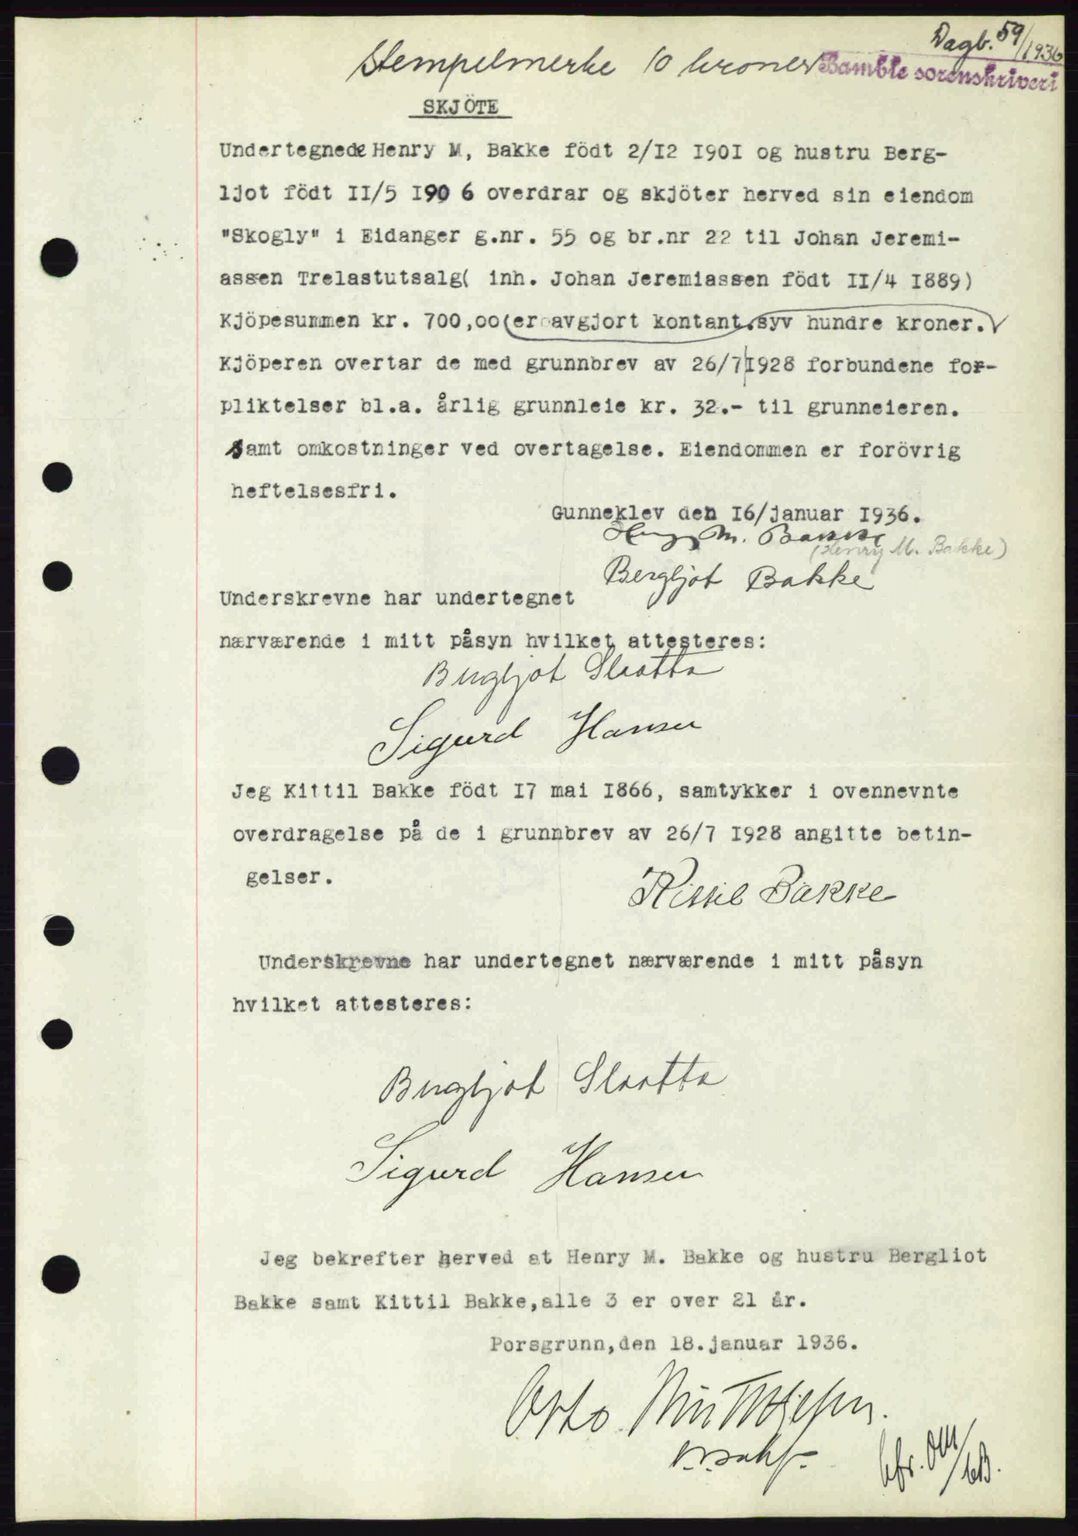 Dagb. 59/1936
Stempelmerke 10 kroner Bamble sorenskriveri
SKJÖTE
Undertegnede Henry M, Bakke födt 2/I2 I90I og hustru Berg-
ljot födt II/5 I90 6 overdrar og skjöter herved sin eiendom
"Skogly" i Eidanger g.nr. 55 og br.nr 22 til Johan Jeremi-
assen Trelastutsalg( inh. Johan Jeremiassen födt II/4 I889)
Kjöpesummen kr. 700,00 er avgjort kontant. syv hundre kroner.
Kjöperen overtar de med grunnbrev av 26/7 I928 forbundene for-
pliktelser bl.a. årlig grunnleie kr. 32.- til grunneieren.
Samt omkostninger ved overtagelse. Eiendommen er forövrig
heftelsesfri.
Gunneklev den I6/januar I936.
Henry M. Bakke
(Henry M. Bakke)
Bergljot Bakke
Underskrevne har undertegnet
nærværende i mitt påsyn hvilket attesteres:
Bergljot Slaatta
Sigurd Hansen
Jeg Kittil Bakke födt I7 mai I866, samtykker i ovennevnte
overdragelse på de i grunnbrev av 26/7 I928 angitte betin-
gelser.
Kittil Bakke
Underskrevne har undertegnet nærværende i mitt påsyn
hvilket attesteres:
Bergljot Slaatta
Sigurd Hansen
Jeg bekrefter herved at Henry M. Bakke og hustru Bergliot
Bakke samt Kittil Bakke,alle 3 er over 21 år.
Porsgrunn,den 18.januar 1936.
Otto